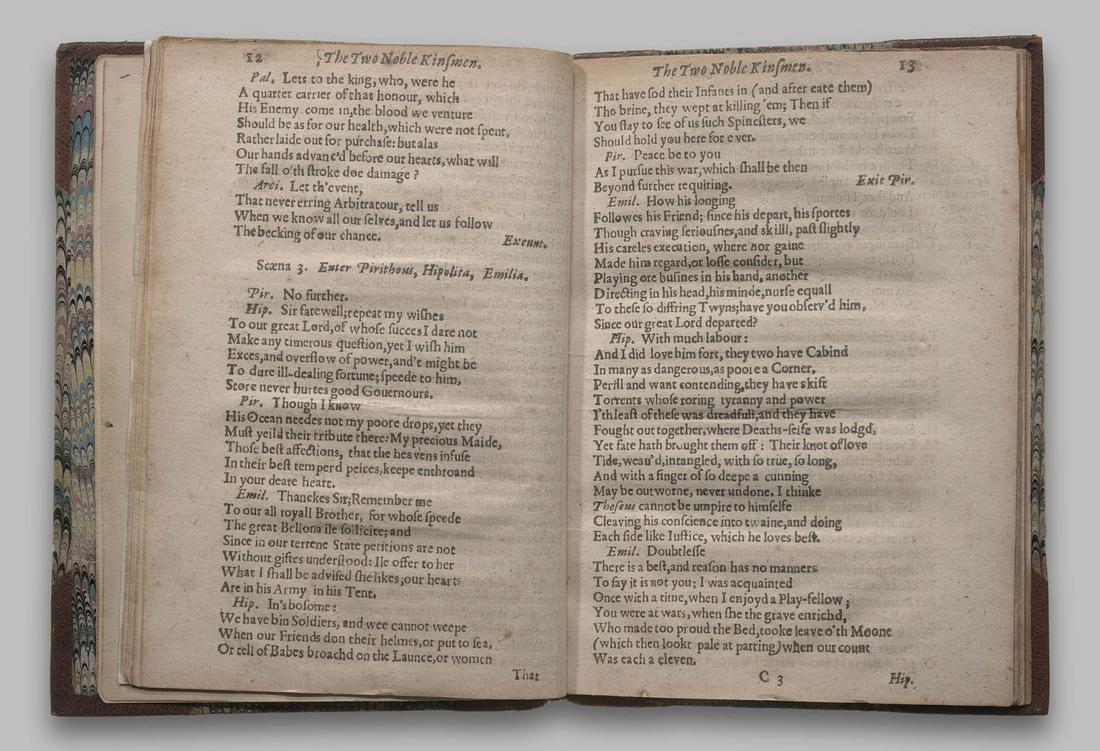 12 The Two Noble Kinſmen.
Pal. Lets to the king, who, were he
A quarter carrier of that honour, which
His Enemy come in,the blood we venture
Should be as for our health,which were not ſpent,
Rather laide out for purchaſe: but alas
Our hands advanc'd before our hearts, what will
The fall o'th ſtroke doe damage?
Arci. Let th'event,
That never erring Arbitratour, tell us
When we know all our ſelves,and let us follow
The becking of our chance. Exeunt.
Scæna 3. Enter Pirithous, Hipolita, Emilia.
Pir. No further.
Hip. Sir farewell;repeat my wiſhes
To our great Lord,of whoſe ſucces I dare not
Make any timerous queſtion,yet I wiſh him
Exces,and overflow of power,and't might be
To dure ill-dealing fortune; ſpeede to him,
Store never hurtes good Gouernours.
Pir. Though I know
His Ocean needes not my poore drops, yet they
Muſt yeild their tribute there: My precious Maide,
Thoſe beſt affections, that the heavens infuſe
In their beſt temperd peices,keepe enthroand
In your deare heart.
Emil. Thanckes Sir;Remember me
To our all royall Brother, for whoſe ſpeede
The great Bellona ile ſollicite; and
Since in our terrene State petitions are not
Without giftes underſtood: Ile offer to her
What I ſhall be adviſed ſhe likes; our hearts
Are in his Army in his Tent.
Hip. In's boſome:
We have bin Soldiers, and wee cannot weepe
When our Friends don their helmes, or put to ſea,
Or tell of Babes broachd on the Launce, or women
That
The Two Noble Kinſmen. 13
That have ſod their Infants in (and after eate them)
The brine, they wept at killing 'em; Then if
You ſtay to ſee of us ſuch Spincſters, we
Should hold you here for ever.
Pir. Peace be to you
As I purſue this war, which ſhall be then
Beyond further requiring. Exit Pir.
Emil. How his longing
Followes his Friend; ſince his depart, his ſportes
Though craving ſeriouſnes, and skill, paſt ſlightly
His careles execution, where nor gaine
Made him regard, or loſſe conſider, but
Playing ore buſines in his hand, another
Directing in his head, his minde, nurſe equall
To theſe ſo diffring Twyns; have you obſerv'd him,
Since our great Lord departed?
Hip. With much labour:
And I did love him fort, they two have Cabind
In many as dangerous, as poore a Corner,
Perill and want contending, they have skift
Torrents whoſe roring tyranny and power
I'th leaſt of theſe was dreadfull, and they have
Fought out together, where Deaths-ſelfe was lodgd,
Yet fate hath brought them off: Their knot of love
Tide, weau'd, intangled, with ſo true, ſo long,
And with a finger of ſo deepe a cunning
May be outworne, never undone. I thinke
Theſeus cannot be umpire to himſelfe
Cleaving his conſcience into twaine, and doing
Each ſide like Iuſtice, which he loves beſt.
Emil. Doubtleſſe
There is a beſt, and reaſon has no manners
To ſay it is not you; I was acquainted
Once with a time, when I enjoyd a Play-fellow;
You were at wars, when ſhe the grave enrichd,
Who made too proud the Bed, tooke leave o'th Moone
(which then lookt pale at parting) when our count
Was each a eleven.
C 3 Hip.